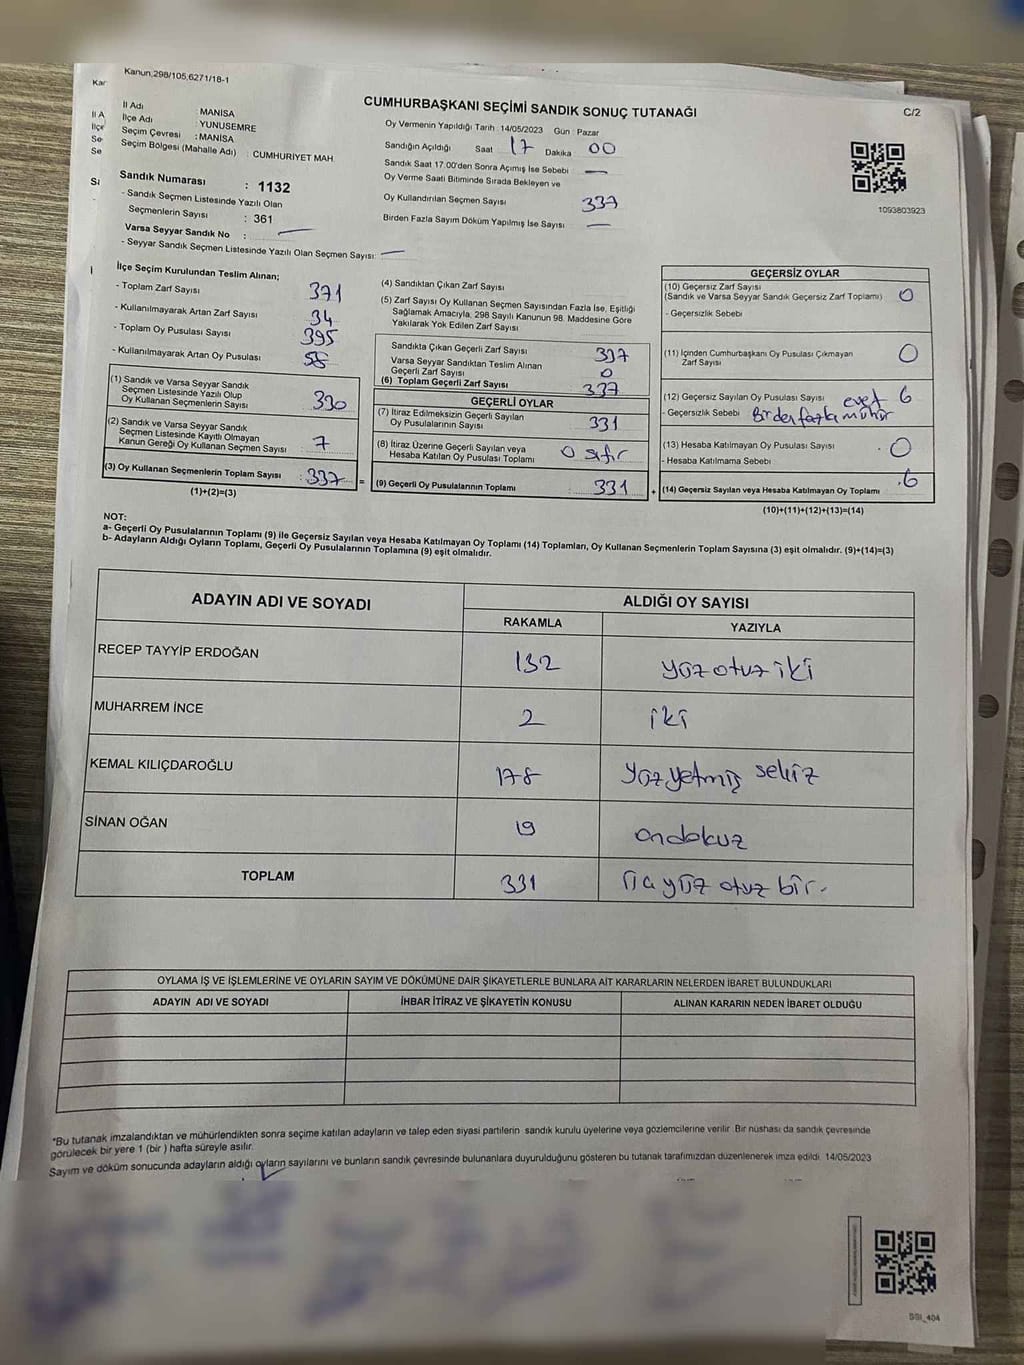 Kanun,298/105,6271/18-1
CUMHURBAŞKANI SEÇİMİ SANDIK SONUÇ TUTANAĞI
C/2
İl Adı : MANİSA
İlçe Adı : YUNUSEMRE
Seçim Çevresi : MANİSA
Seçim Bölgesi (Mahalle Adı) : CUMHURİYET MAH.
Oy Vermenin Yapıldığı Tarih : 14/05/2023 Gün : Pazar
Sandığın Açıldığı Saat 17 Dakika 00
Sandık Saat 17.00'den Sonra Açımış İse Sebebi —
Oy Verme Saati Bitiminde Sırada Bekleyen ve
Oy Kullandırılan Seçmen Sayısı 337
Birden Fazla Sayım Döküm Yapılmış İse Sayısı —
1093803923
Sandık Numarası : 1132
- Sandık Seçmen Listesinde Yazılı Olan
Seçmenlerin Sayısı : 361
Varsa Seyyar Sandık No : —
- Seyyar Sandık Seçmen Listesinde Yazılı Olan Seçmen Sayısı: —
İlçe Seçim Kurulundan Teslim Alınan;
- Toplam Zarf Sayısı 371
- Kullanılmayarak Artan Zarf Sayısı 34
- Toplam Oy Pusulası Sayısı 395
- Kullanılmayarak Artan Oy Pusulası 58
(1) Sandık ve Varsa Seyyar Sandık
Seçmen Listesinde Yazılı Olup
Oy Kullanan Seçmenlerin Sayısı : 330
(2) Sandık ve Varsa Seyyar Sandık
Seçmen Listesinde Kayıtlı Olmayan
Kanun Gereği Oy Kullanan Seçmen Sayısı : 7
(3) Oy Kullanan Seçmenlerin Toplam Sayısı : 337
(1)+(2)=(3)
=
(4) Sandıktan Çıkan Zarf Sayısı
(5) Zarf Sayısı Oy Kullanan Seçmen Sayısından Fazla İse, Eşitliği
Sağlamak Amacıyla, 298 Sayılı Kanunun 98. Maddesine Göre
Yakılarak Yok Edilen Zarf Sayısı
Sandıkta Çıkan Geçerli Zarf Sayısı 337
Varsa Seyyar Sandıktan Teslim Alınan
Geçerli Zarf Sayısı 0
(6) Toplam Geçerli Zarf Sayısı 337
GEÇERLİ OYLAR
(7) İtiraz Edilmeksizin Geçerli Sayılan
Oy Pusulalarının Sayısı 331
(8) İtiraz Üzerine Geçerli Sayılan veya
Hesaba Katılan Oy Pusulası Toplamı 0 sıfır
(9) Geçerli Oy Pusulalarının Toplamı : 331
+
GEÇERSİZ OYLAR
(10) Geçersiz Zarf Sayısı
(Sandık ve Varsa Seyyar Sandık Geçersiz Zarf Toplamı) 0
- Geçersizlik Sebebi
(11) İçinden Cumhurbaşkanı Oy Pusulası Çıkmayan
Zarf Sayısı 0
(12) Geçersiz Sayılan Oy Pusulası Sayısı evet 6
- Geçersizlik Sebebi Birden fazla mühür
(13) Hesaba Katılmayan Oy Pusulası Sayısı : 0
- Hesaba Katılmama Sebebi
(14) Geçersiz Sayılan veya Hesaba Katılmayan Oy Toplamı : 6
(10)+(11)+(12)+(13)=(14)
NOT:
a- Geçerli Oy Pusulalarının Toplamı (9) ile Geçersiz Sayılan veya Hesaba Katılmayan Oy Toplamı (14) Toplamları, Oy Kullanan Seçmenlerin Toplam Sayısına (3) eşit olmalıdır. (9)+(14)=(3)
b- Adayların Aldığı Oyların Toplamı, Geçerli Oy Pusulalarının Toplamına (9) eşit olmalıdır.
ADAYIN ADI VE SOYADI
ALDIĞI OY SAYISI
RAKAMLA YAZIYLA
RECEP TAYYİP ERDOĞAN 132 yüz otuz iki
MUHARREM İNCE 2 iki
KEMAL KILIÇDAROĞLU 178 yüz yetmiş sekiz
SİNAN OĞAN 19 ondokuz
TOPLAM 331 üç yüz otuz bir.
OYLAMA İŞ VE İŞLEMLERİNE VE OYLARIN SAYIM VE DÖKÜMÜNE DAİR ŞİKAYETLERLE BUNLARA AİT KARARLARIN NELERDEN İBARET BULUNDUKLARI
ADAYIN ADI VE SOYADI İHBAR İTİRAZ VE ŞİKAYETİN KONUSU ALINAN KARARIN NEDEN İBARET OLDUĞU
*Bu tutanak imzalandıktan ve mühürlendikten sonra seçime katılan adayların ve talep eden siyasi partilerin sandık kurulu üyelerine veya gözlemcilerine verilir. Bir nüshası da sandık çevresinde
görülecek bir yere 1 (bir) hafta süreyle asılır.
Sayım ve döküm sonucunda adayların aldığı oyların sayılarını ve bunların sandık çevresinde bulunanlara duyurulduğunu gösteren bu tutanak tarafımızdan düzenlenerek imza edildi. 14/05/2023
SSI_404